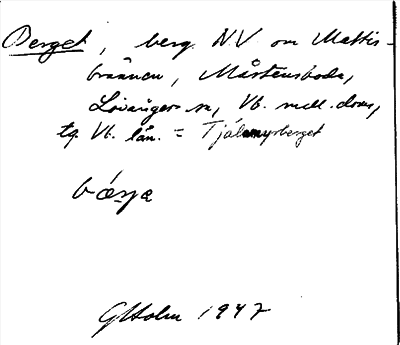 Berget, berg NV om Mattis-
brännan, Mårtensboda,
Lövångers sn, Vb. mell. doms,
tg. Vb. län. = Tjälamyrberget
bǽrjæ
GHolm 1947